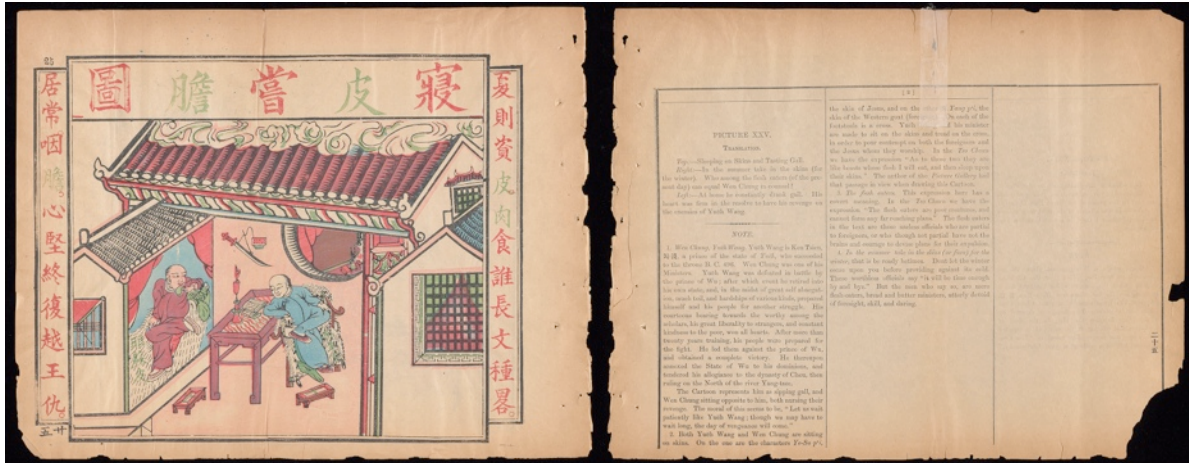 寢皮嘗膽圖
夏則資皮肉食誰長文種畧
居常咽膽心堅終復越王仇
廿五
PICTURE XXV.
TRANSLATION.
Top:—Sleeping on Skins and Tasting Gall.
Right:—In the summer take in the skins (for
the winter). Who among the flesh eaters (of the pre-
sent day) can equal Wen Chung in resource?
Left:—At home he constantly drank gall. His
heart was firm in the resolve to have his revenge on
the enemies of Yueh Wang.
NOTE.
1. Wen Chung. Yueh Wang. Yueh Wang is Kou Tsien,
is prince of the state of Yueh, who succeeded
to the throne B. C. Wen Chung was one of his
Ministers. Yueh Wang was defeated in battle by
the prince of Wu; after which event he retired into
his own state, and, in the midst of great self abnega-
tion, much toil, and hardships of various kinds, prepared
himself and his people for another struggle. His
courteous bearing towards the worthy among the
scholars, his great liberality to strangers, and constant
kindness to the poor, won all hearts. After more than
twenty years training, his people were prepared for
the fight. He led them against the prince of Wu,
and obtained a complete victory. He thereupon
annexed the State of Wu to his dominions, and
tendered his allegiance to the dynasty of Chou, then
ruling on the North of the river Yang-tsze.
The Cartoon represents him as sipping gall, and
Wen Chung sitting opposite to him, both nursing their
revenge. The moral of this seems to be, "Let us wait
patiently like Yueh Wang; though we may have to
wait long, the day of vengeance will come."
2. Both Yueh Wang and Wen Chung are sitting
on skins. On the one are the characters Ye-Su p'i,
the skin of Jesus, and on the other Yang p'i, the
skin of the Western goat On each of the
footstools is a cross. Yueh and his minister
are made to sit on the skins and tread on the cross,
in order to pour contempt on both the foreigners and
the Jesus whom they worship. In the Tso Chuen
we have the expression "As to these two they are
like beasts whose flesh I will eat, and then sleep upon
their skins." The author of the Picture Gallery had
that passage in view when drawing this Cartoon.
3. The flesh eaters. This expression here has a
covert meaning. In the Tso Chuen we have the
expression, "The flesh eaters are poor creatures and
cannot form any far reaching plans." The flesh eaters
in the text are those useless officials who are partial
to foreigners, or who though not partial have not the
brains and courage to devise plans for their expulsion.
4. In the summer take in the skins (or furs) for the
winter, that is be ready betimes. Don't let the winter
come upon you before providing against its cold.
These worthless officials say "it will be time enough
by and bye." But the men who say so, are mere
flesh-eaters, bread and butter ministers, utterly devoid
of foresight, skill, and daring.
二十五